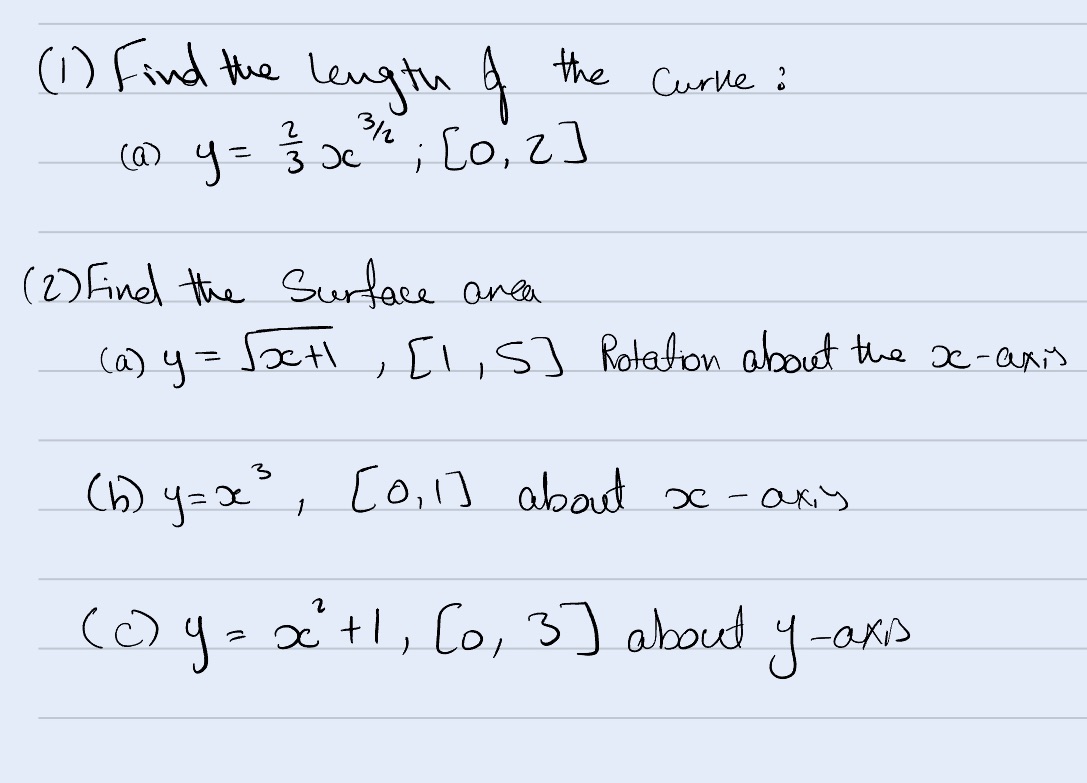 (1) Find the length of the curve:
(a) y = 2/3 x^3/2 ; [0, 2]
(2) Find the Surface area
(a) y = √x+1 , [1, 5] Rotation about the x-axis
(b) y = x^3 , [0,1] about x - axis
(c) y = x^2 + 1, [0, 3] about y-axis